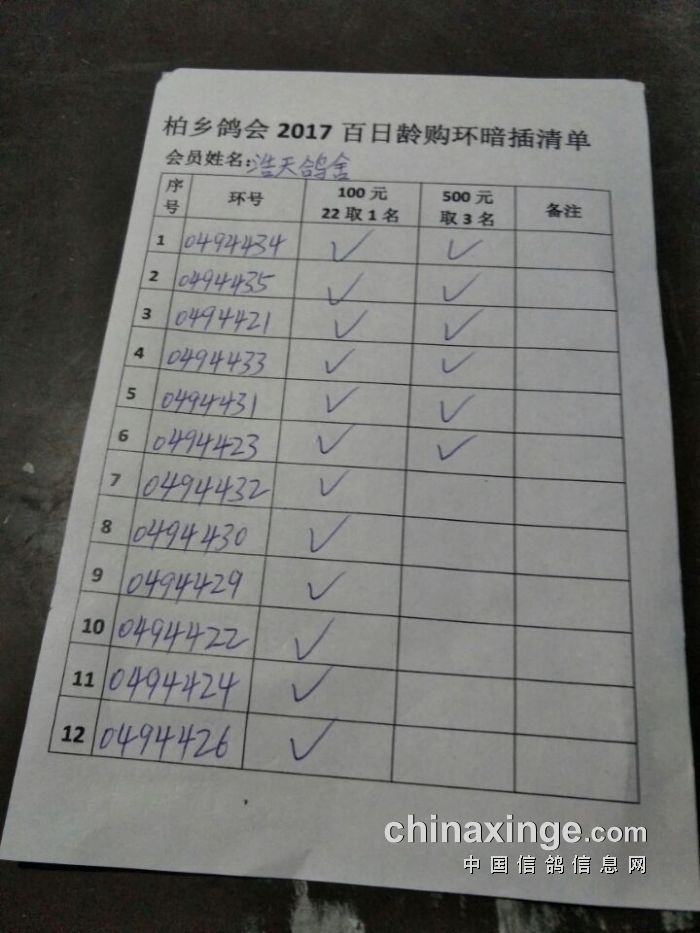 柏乡鸽会2017百日龄购环暗插清单
会员姓名:浩天鸽舍
序号 环号 100元 22取1名 500元 取3名 备注
1 0494434 ✓ ✓
2 0494435 ✓ ✓
3 0494421 ✓ ✓
4 0494433 ✓ ✓
5 0494431 ✓ ✓
6 0494423 ✓ ✓
7 0494432 ✓
8 0494430 ✓
9 0494429 ✓
10 0494422 ✓
11 0494424 ✓
12 0494426 ✓
chinaxinge.com
中国信鸽信息网